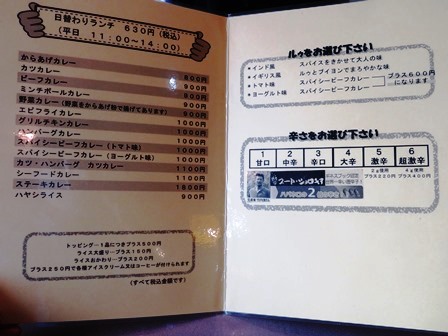 日替わりランチ 630円(税込)
(平日 11:00~14:00)
からあげカレー 800円
カツカレー
ビーフカレー 900円
ミンチボールカレー 800円
野菜カレー(野菜をからあげ粉で揚げてあります) 900円
エビフライカレー
グリルチキンカレー 1000円
ハンバーグカレー 1000円
スパイシービーフカレー 1000円
スパイシービーフカレー(トマト味) 1000円
スパイシービーフカレー(ヨーグルト味) 1000円
カツ・ハンバーグ カツカレー
シーフードカレー 1100円
ステーキカレー
ハヤシライス 900円
トッピング…1品につきプラス500円
ライス大盛り…プラス150円
ライスおかわり…プラス200円
プラス250円で各種アイスクリーム又はコーヒーが付けられます
(すべて税込金額です)
ルゥをお選び下さい
*インド風 スパイスをきかせて大人の味
*イギリス風 ルゥとブイヨンでまろやかな味
*トマト味 スパイシービーフカレー プラス600円
*ヨーグルト味 スパイシービーフカレー になります
辛さをお選び下さい
1 2 3 4 5 6
甘口 中辛 辛口 大辛 激辛 超激辛
2g使用 4g使用
プラス220円 プラス400円